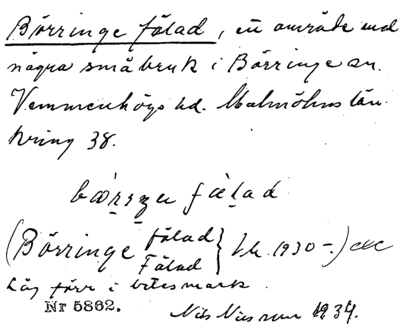 Börringe fälad, ett område med
några småbruk i Börringe sn.
Vemmenhögs hd. Malmöhus län.
Kring 38.
bœ̀rɪŋə fä̀lad
(Börringe fälad Fälad } Lk. 1930-.)
Låg förr i betesmark.
Nr 5862. Nils Nilsson 1934.